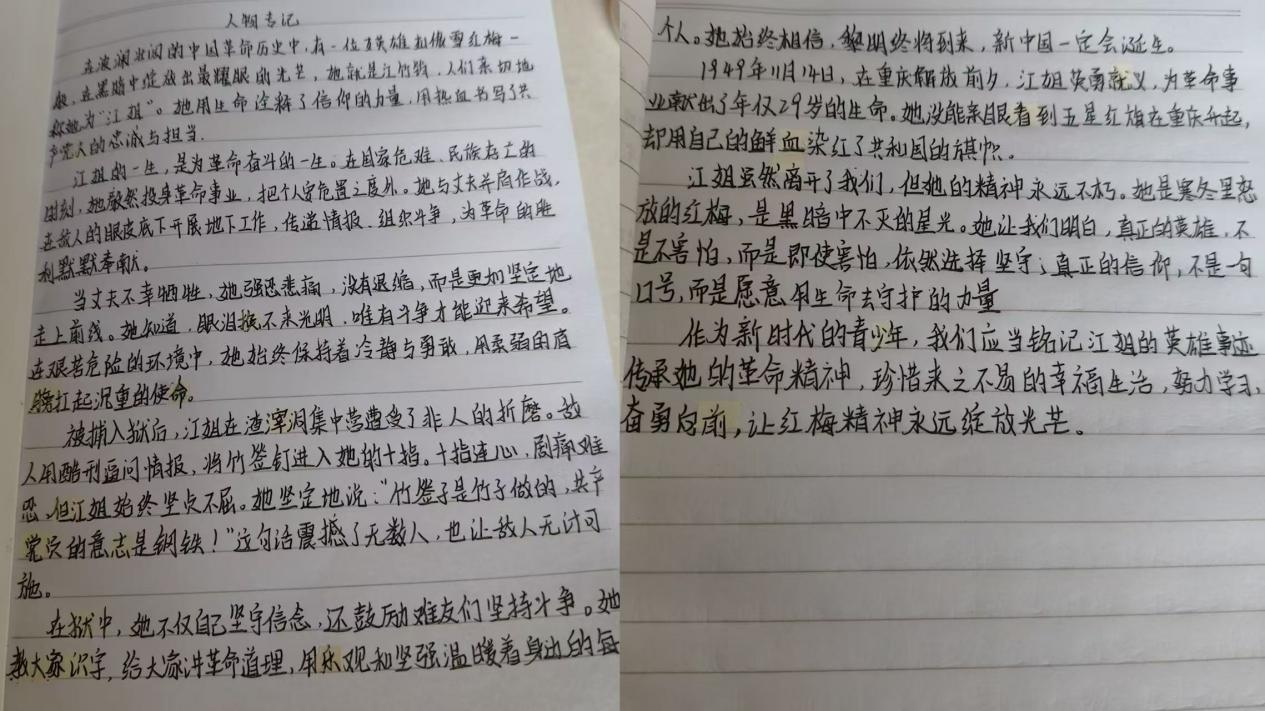 人物专记
在波澜壮阔的中国革命历史中,有一位英雄如傲雪红梅一
般,在黑暗中绽放出最耀眼的光芒,她就是江竹筠,人们亲切地
称她为“江姐”。她用生命诠释了信仰的力量,用热血书写了共
产党人的忠诚与担当.
江姐的一生,是为革命奋斗的一生。在国家危难、民族存亡的
时刻,她毅然投身革命事业,把个人安危置之度外。她与丈夫并肩作战,
在敌人的眼皮底下开展地下工作,传递情报、组织斗争,为革命的胜
利默默奉献。
当丈夫不幸牺牲,她强忍悲痛,没有退缩,而是更加坚定地
走上前线。她知道,眼泪换不来光明,唯有斗争才能迎来希望。
在艰苦危险的环境中,她始终保持着冷静与勇敢,用柔弱的肩
膀扛起沉重的使命。
被捕入狱后,江姐在渣滓洞集中营遭受了非人的折磨。敌
人用酷刑逼问情报,将竹签钉进入她的十指。十指连心,剧痛难
忍,但江姐始终坚贞不屈。她坚定地说:“竹签子是竹子做的,共产
党员的意志是钢铁!”这句话震撼了无数人,也让敌人无计可
施。
在狱中,她不仅自己坚守信念,还鼓励难友们坚持斗争。她
教大家识字,给大家讲革命道理,用乐观和坚强温暖着身边的每
个人。她始终相信,黎明终将到来,新中国一定会诞生。
1949年11月14日,在重庆解放前夕,江姐英勇就义,为革命事
业献出了年仅29岁的生命。她没能亲眼看到五星红旗在重庆升起,
却用自己的鲜血染红了共和国的旗帜。
江姐虽然离开了我们,但她的精神永远不朽。她是寒冬里怒
放的红梅,是黑暗中不灭的星光。她让我们明白,真正的英雄,不
是不害怕,而是即使害怕,依然选择坚守;真正的信仰,不是一句
口号,而是愿意用生命去守护的力量
作为新时代的青少年,我们应当铭记江姐的英雄事迹
传承她的革命精神,珍惜来之不易的幸福生活,努力学习,
奋勇向前,让红梅精神永远绽放光芒。